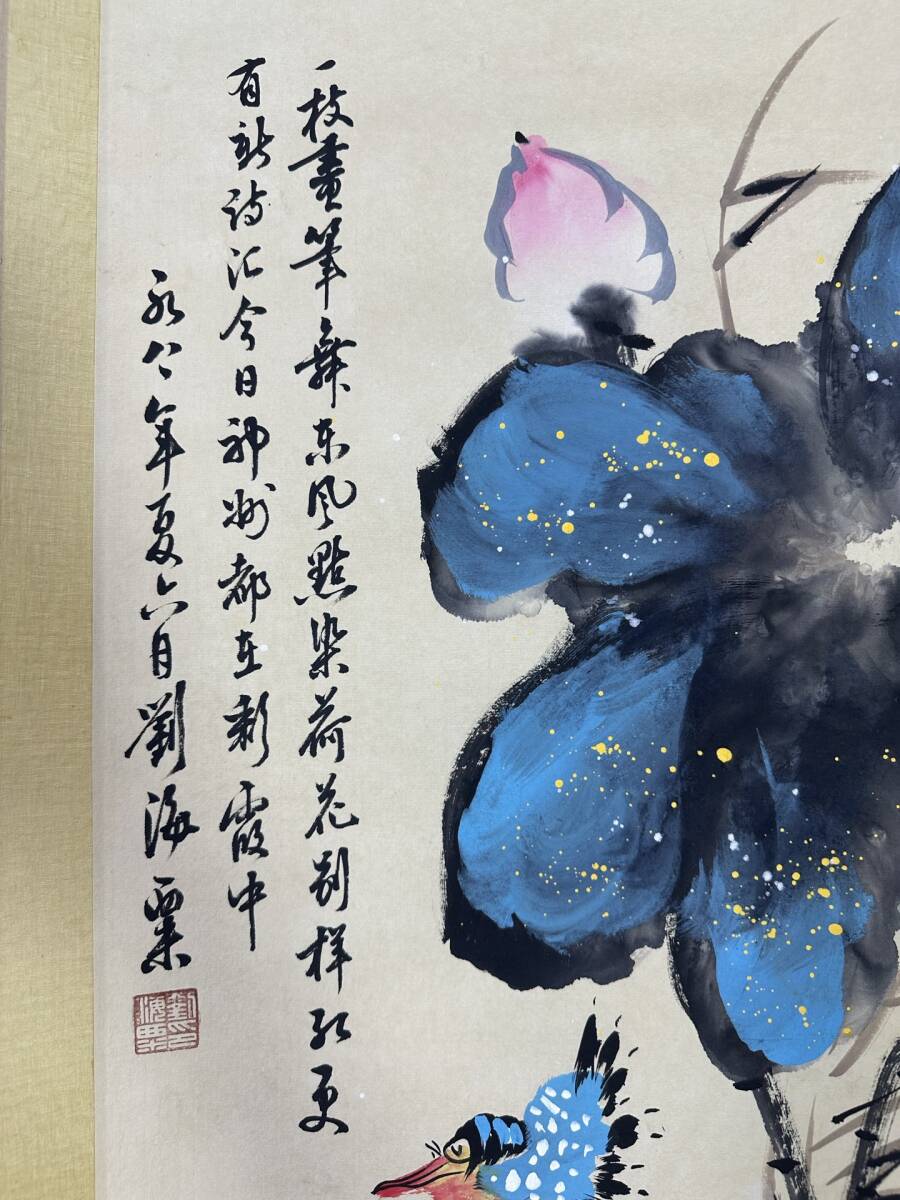 一枝畫筆舞东风點染荷花别样红更
有新诗汇今日神州都在彩霞中
年夏六月劉海粟
劉印海粟